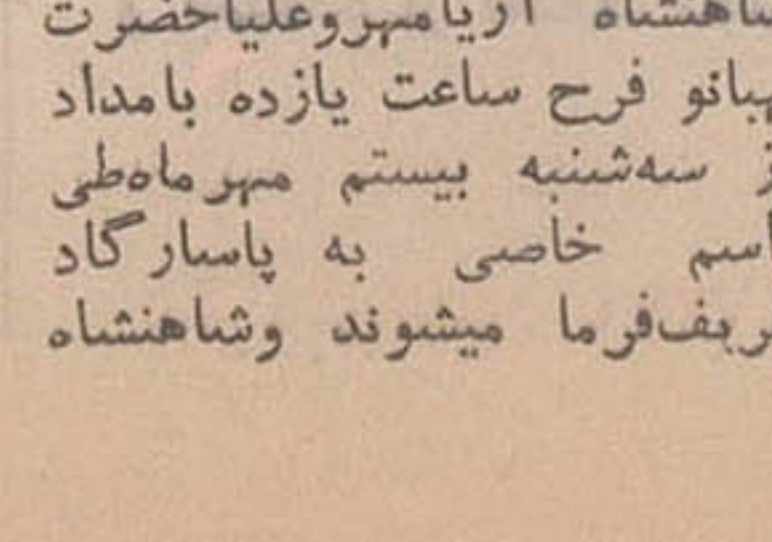 شاهنشاه آریامهر وعلیاحضرت
بانو فرح ساعت یازده بامداد
سه‌شنبه بیستم مهر ماه‌طی
اسم خاصی به پاسارگاد
ریف‌فرما میشوند وشاهنشاه